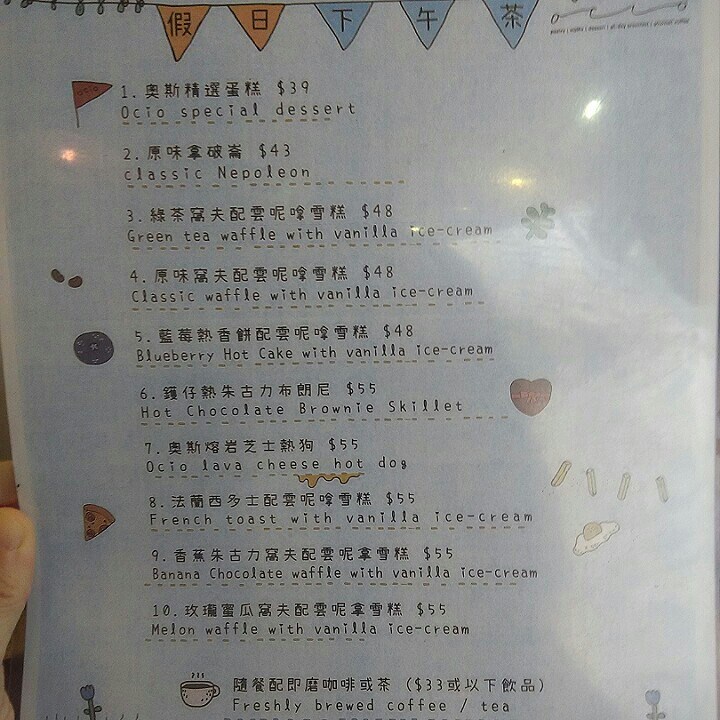 假日下午茶
ocio
1. 奧斯精選蛋糕 $39
Ocio special dessert
2. 原味拿破崙 $43
classic Nepoleon
3. 綠茶窩夫配雲呢嗱雪糕 $48
Green tea waffle with vanilla ice-cream
4. 原味窩夫配雲呢嗱雪糕 $48
Classic waffle with vanilla ice-cream
5. 藍莓熱香餅配雲呢嗱雪糕 $48
Blueberry Hot Cake with vanilla ice-cream
6. 鑊仔熱朱古力布朗尼 $55
Hot Chocolate Brownie Skillet
7. 奧斯熔岩芝士熱狗 $55
Ocio lava cheese hot dog
8. 法蘭西多士配雲呢嗱雪糕 $55
French toast with vanilla ice-cream
9. 香蕉朱古力窩夫配雲呢拿雪糕 $55
Banana Chocolate waffle with vanilla ice-cream
10. 玫瓏蜜瓜窩夫配雲呢拿雪糕 $55
Melon waffle with vanilla ice-cream
隨餐配即磨咖啡或茶 ($33或以下飲品)
Freshly brewed coffee / tea